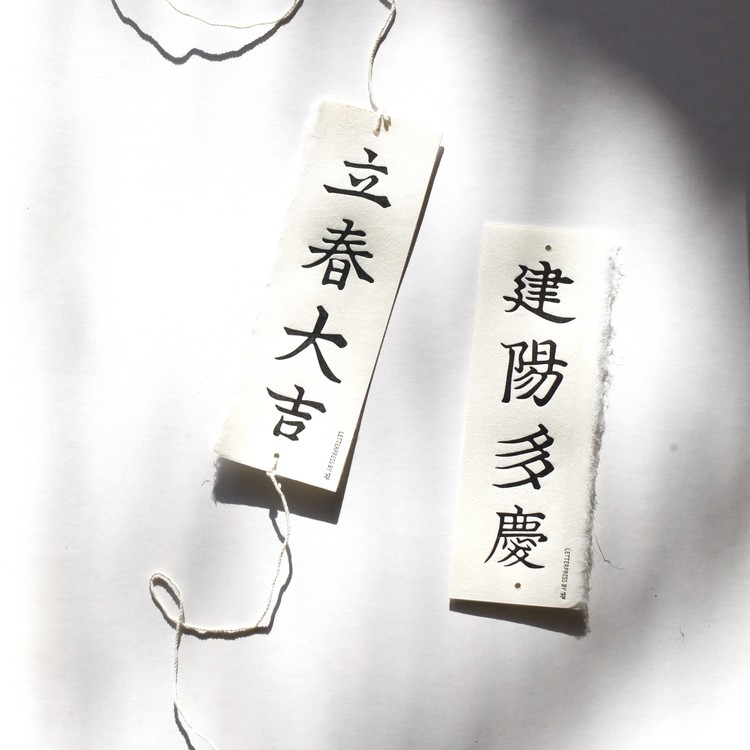 立春大吉
LETTERPRESS BY
建陽多慶
LETTERPRESS BY